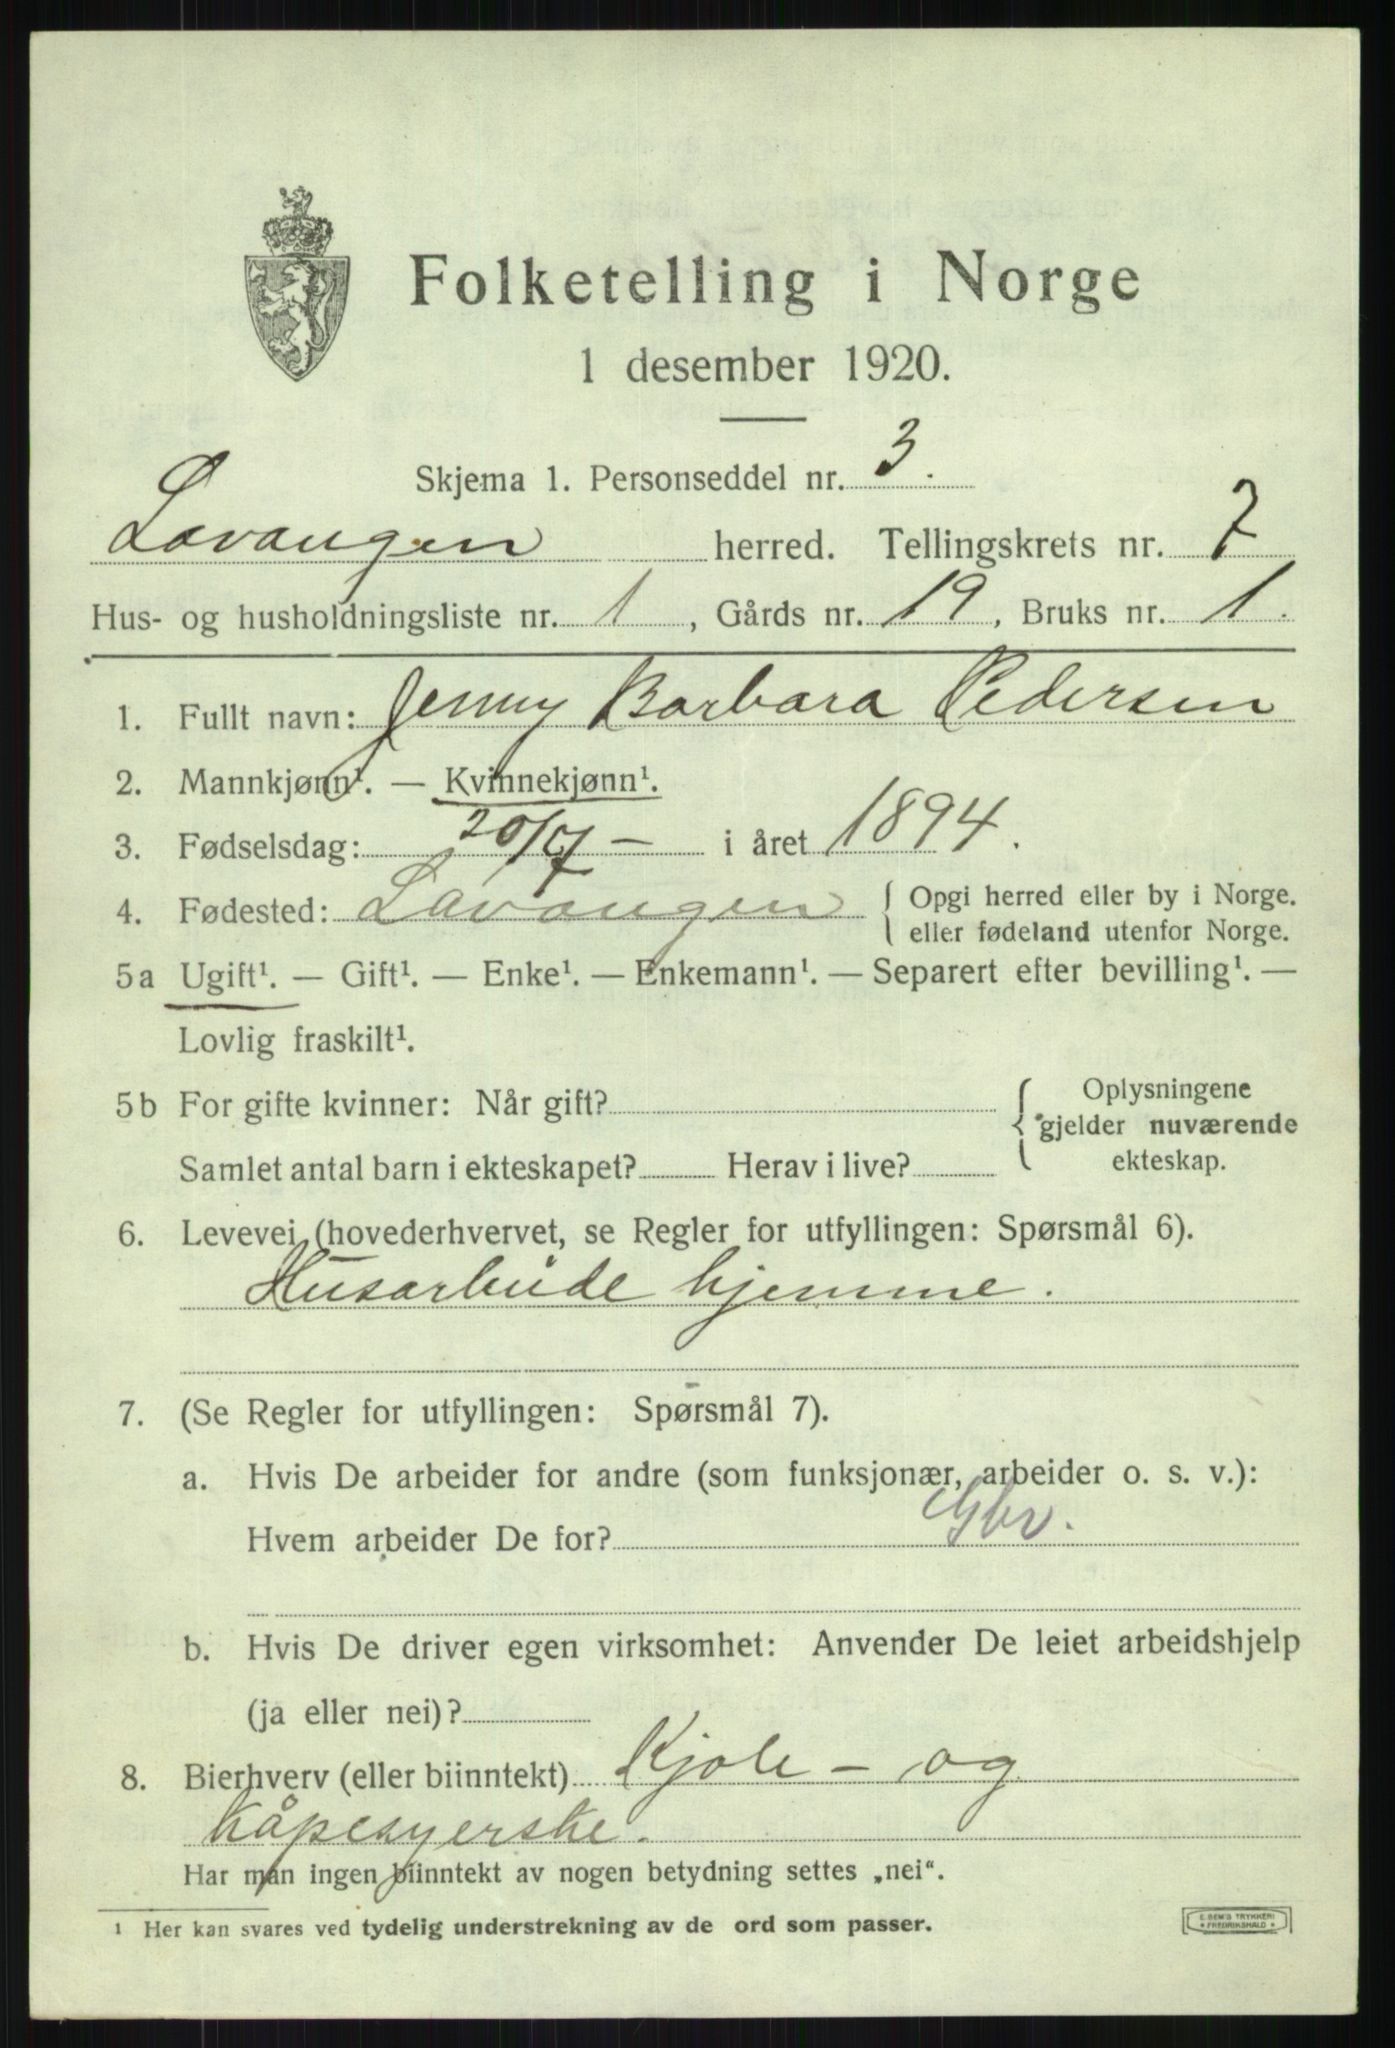 Folketelling i Norge
1 desember 1920.
Skjema 1. Personseddel nr. 3.
Lavangen herred. Tellingskrets nr. 7
Hus- og husholdningsliste nr. 1, Gårds nr. 19, Bruks nr. 1.
1. Fullt navn: Jenny Barbara Pedersen
2. Mannkjønn¹. — Kvinnekjønn¹.
3. Fødselsdag: 20/7 – i året 1894.
4. Fødested: Lavangen { Opgi herred eller by i Norge.
eller fødeland utenfor Norge.
5a Ugift¹. — Gift¹. — Enke¹. — Enkemann¹. — Separert efter bevilling¹. —
Lovlig fraskilt¹.
5b For gifte kvinner: Når gift? { Oplysningene
gjelder nuværende
Samlet antal barn i ekteskapet? Herav i live? ekteskap.
6. Levevei (hovederhvervet, se Regler for utfyllingen: Spørsmål 6).
Husarbeide hjemme.
7. (Se Regler for utfyllingen: Spørsmål 7).
a. Hvis De arbeider for andre (som funksjonær, arbeider o. s. v.):
Hvem arbeider De for? Gbr.
b. Hvis De driver egen virksomhet: Anvender De leiet arbeidshjelp
(ja eller nei)?
8. Bierhverv (eller biinntekt) Kjole – og
kåpesyerske.
Har man ingen biinntekt av nogen betydning settes „nei“.
¹ Her kan svares ved tydelig understrekning av de ord som passer.
E. SEM'S TRYKKERI
* FREDRIKSHALD *